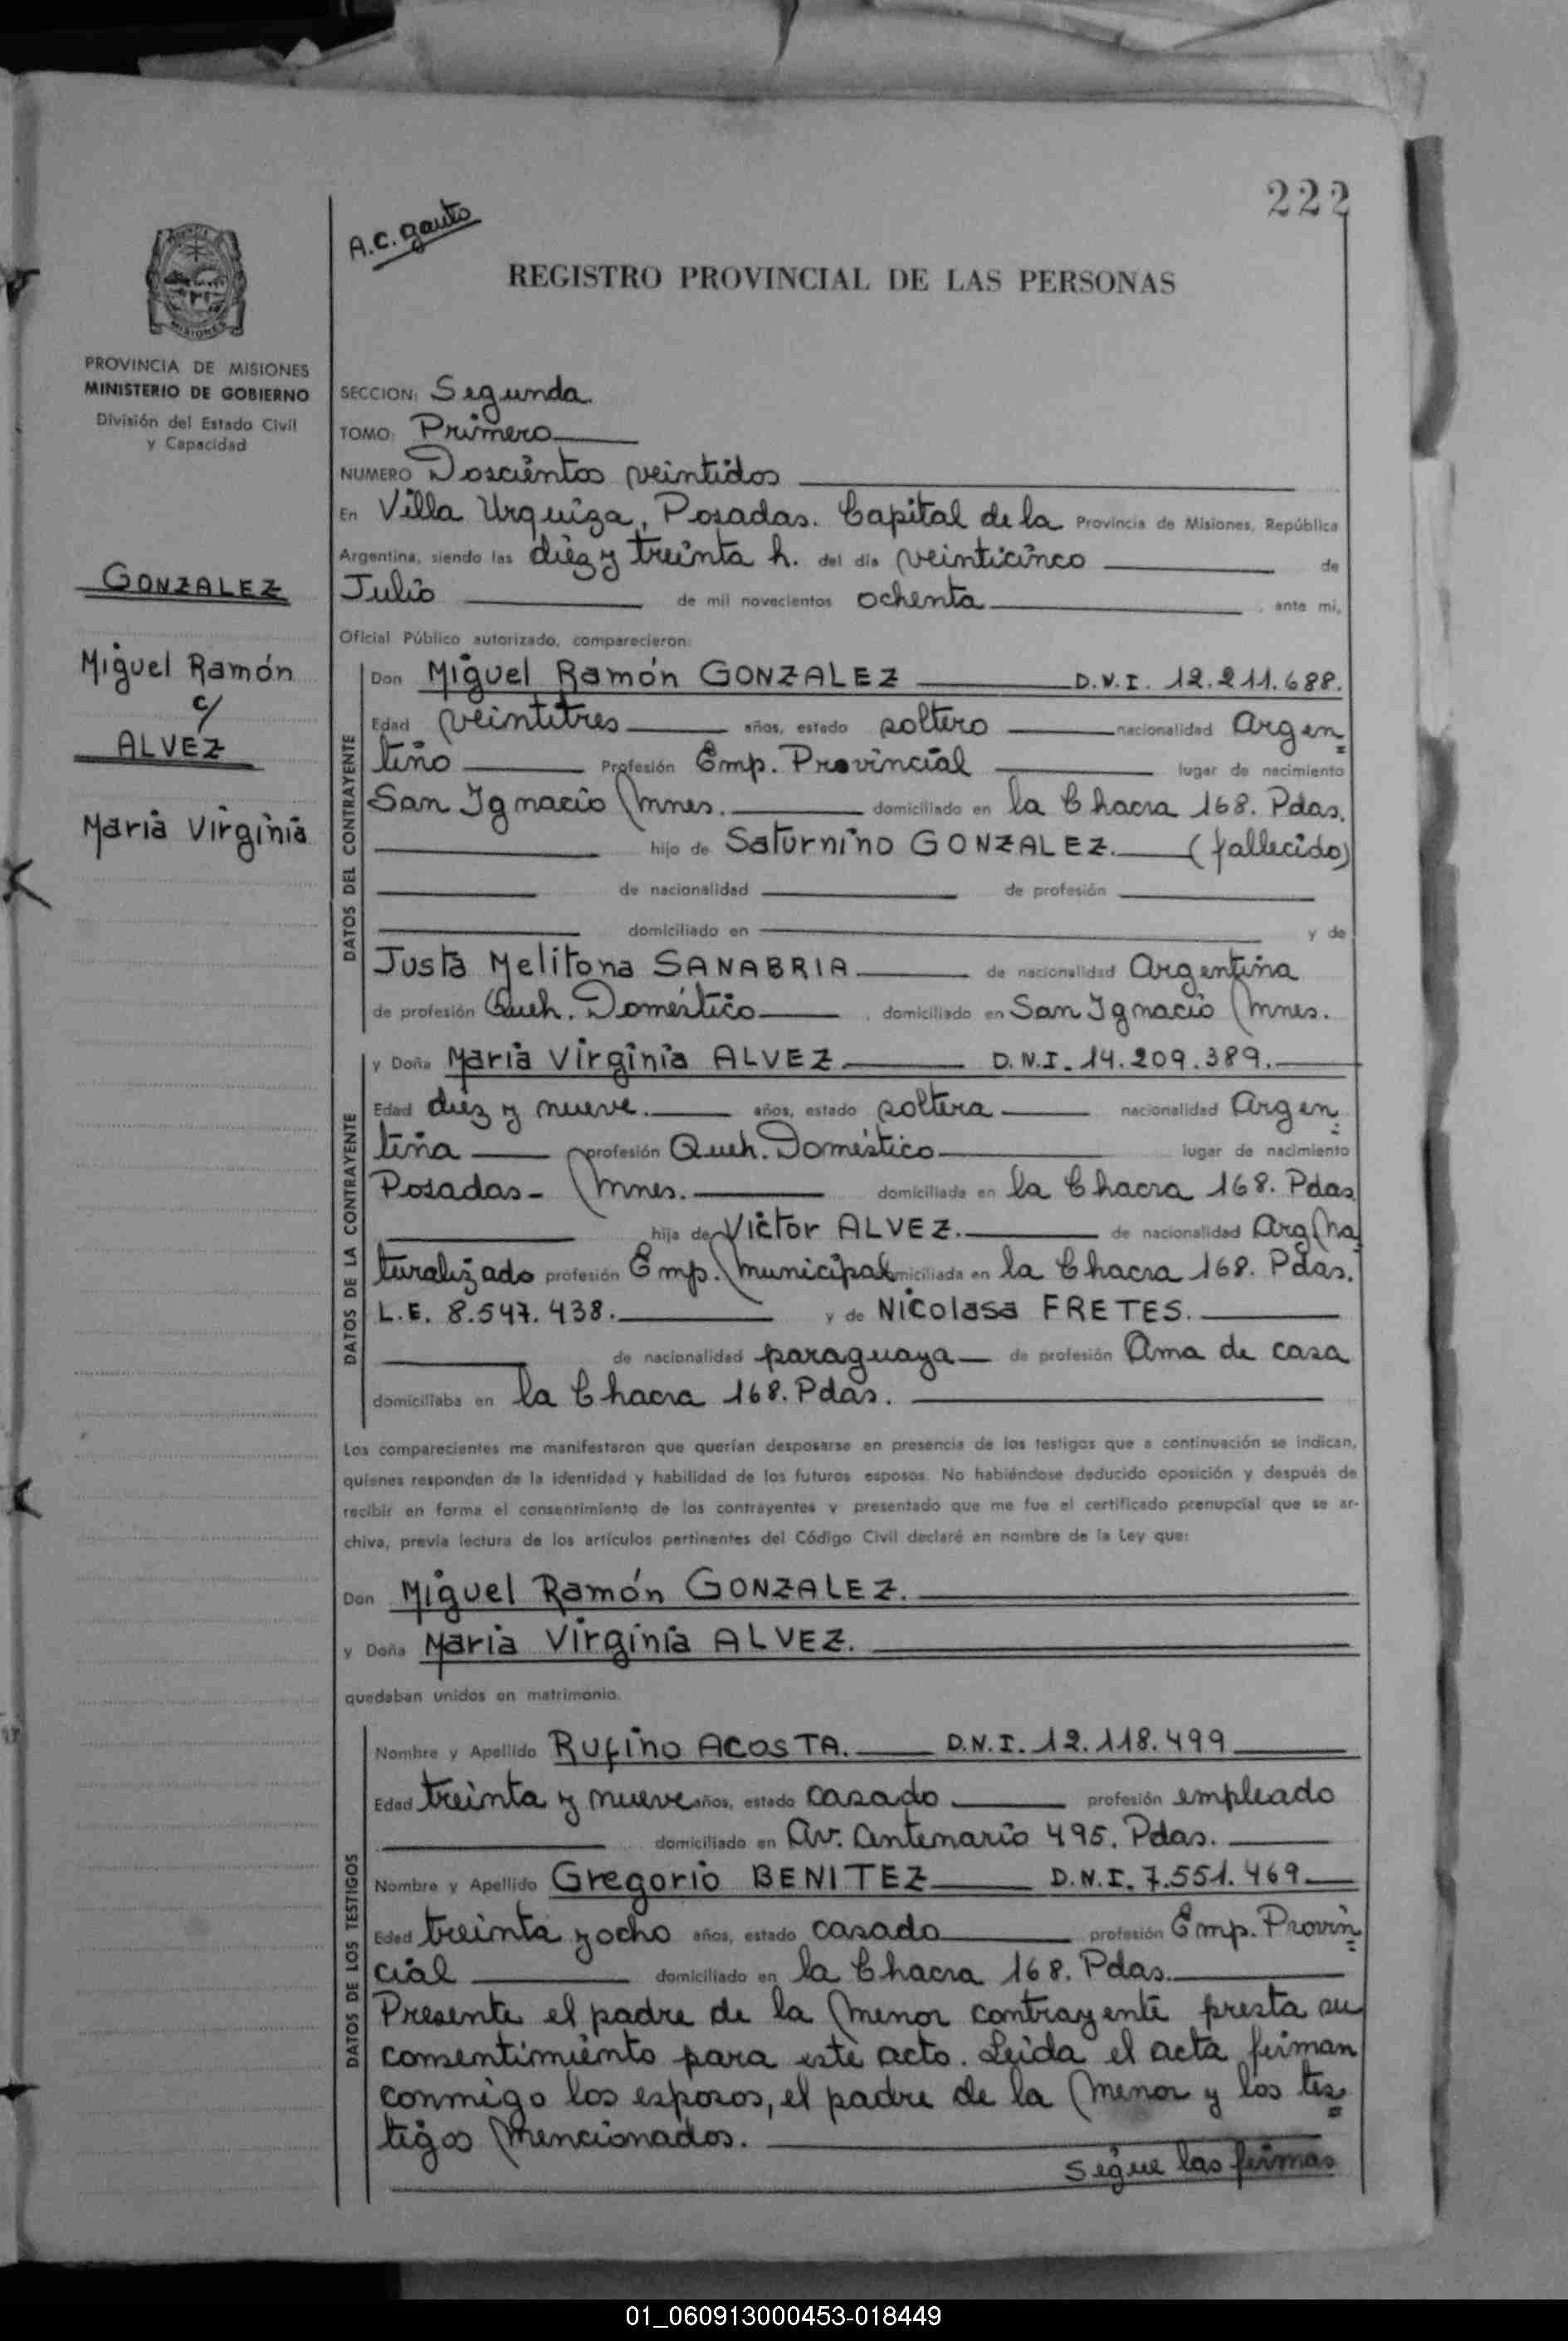 222
A.C. Gauto
REGISTRO PROVINCIAL DE LAS PERSONAS
MISIONES
PROVINCIA DE MISIONES
MINISTERIO DE GOBIERNO
División del Estado Civil
y Capacidad
GONZALEZ
Miguel Ramón
c/
ALVEZ
Maria Virginia
SECCION: Segunda
TOMO: Primero
NUMERO Doscientos veintidos
En Villa Urquiza, Posadas. Capital de la Provincia de Misiones, República
Argentina, siendo las diez y treinta h. del día veinticinco de
Julio de mil novecientos ochenta, ante mi,
Oficial Público autorizado, comparecieron:
DATOS DEL CONTRAYENTE
Don Miguel Ramón GONZALEZ D.N.I. 12.211.688.
Edad veintitres años, estado soltero nacionalidad Argen
tino Profesión Emp. Provincial lugar de nacimiento
San Ignacio Mnes. domiciliado en la Chacra 168. Pdas.
hijo de Saturnino GONZALEZ. (fallecido)
de nacionalidad de profesión
domiciliado en y de
Justa Melitona SANABRIA de nacionalidad Argentina
de profesión Queh. Doméstico, domiciliado en San Ignacio Mnes.
DATOS DE LA CONTRAYENTE
y Doña Maria Virginia ALVEZ D.N.I. 14.209.389.
Edad diez y nueve. años, estado soltera nacionalidad Argen
tina profesión Queh. Doméstico lugar de nacimiento
Posadas - Mnes. domiciliada en la Chacra 168. Pdas
hija de Victor ALVEZ. de nacionalidad Arg. Na
turalizado profesión Emp. Municipal domiciliada en la Chacra 168. Pdas.
L.E. 8.547.438. y de Nicolasa FRETES.
de nacionalidad paraguaya de profesión Ama de casa
domiciliaba en la Chacra 168. Pdas.
Los comparecientes me manifestaron que querían desposarse en presencia de los testigos que a continuación se indican,
quienes responden de la identidad y habilidad de los futuros esposos. No habiéndose deducido oposición y después de
recibir en forma el consentimiento de los contrayentes y presentado que me fue el certificado prenupcial que se ar-
chiva, previa lectura de los artículos pertinentes del Código Civil declaré en nombre de la Ley que:
Don Miguel Ramón GONZALEZ.
y Doña Maria Virginia ALVEZ.
quedaban unidos en matrimonio.
DATOS DE LOS TESTIGOS
Nombre y Apellido Rufino ACOSTA. D.N.I. 12.118.499
Edad treinta y nueve años, estado casado profesión empleado
domiciliado en Av. Centenario 495. Pdas.
Nombre y Apellido Gregorio BENITEZ D.N.I. 7.551.469
Edad treinta y ocho años, estado casado profesión Emp. Provin
cial domiciliado en la Chacra 168. Pdas.
Presente el padre de la menor contrayente presta su
consentimiento para este acto. Leida el acta firman
conmigo los esposos, el padre de la menor y los tes
tigos mencionados.
Segue las firmas
01_060913000453-018449